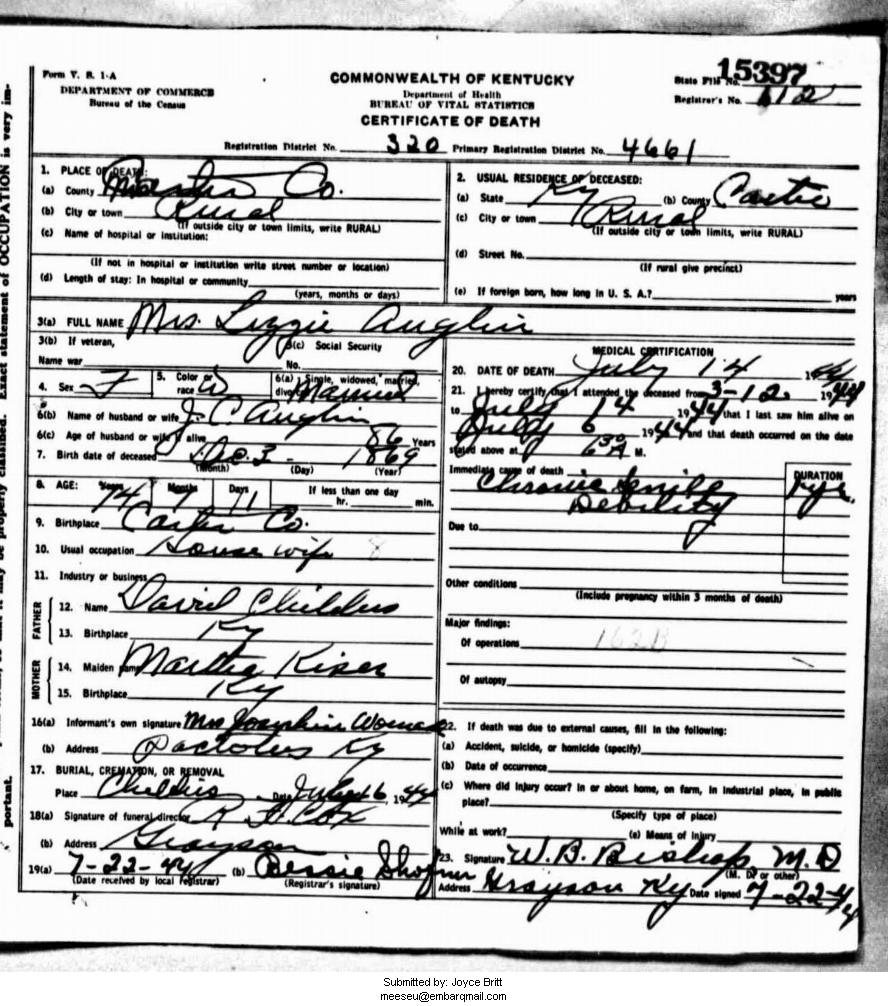 Form V. S. 1-A
DEPARTMENT OF COMMERCE
Bureau of the Census
COMMONWEALTH OF KENTUCKY
Department of Health
BUREAU OF VITAL STATISTICS
CERTIFICATE OF DEATH
State File No. 15397
Registrar's No. 112
Registration District No. 320 Primary Registration District No. 4661
1. PLACE OF DEATH:
(a) County Co.
(b) City or town Rural
(If outside city or town limits, write RURAL)
(c) Name of hospital or institution:
(If not in hospital or institution write street number or location)
(d) Length of stay: In hospital or community
(years, months or days)
2. USUAL RESIDENCE OF DECEASED:
(a) State Ky (b) County Carter
(c) City or town Rural
(If outside city or town limits, write RURAL)
(d) Street No.
(If rural give precinct)
(e) If foreign born, how long in U. S. A.? years
3(a) FULL NAME Mrs. Lizzie Anglin
3(b) If veteran, 3(c) Social Security
Name war No.
4. Sex F 5. Color or race W 6(a) Single, widowed, married, divorced Married
6(b) Name of husband or wife J. C. Anglin
6(c) Age of husband or wife if alive 86 Years
7. Birth date of deceased Dec. 3 - 1869
(Month) (Day) (Year)
8. AGE: Years 74 Months 7 Days 11 If less than one day
hr. min.
9. Birthplace Carter Co.
10. Usual occupation House wife
11. Industry or business
FATHER
12. Name David Childers
13. Birthplace Ky
MOTHER
14. Maiden name Martha Kiser
15. Birthplace Ky
16(a) Informant's own signature Mrs Josephine
(b) Address Pactolus Ky
17. BURIAL, CREMATION, OR REMOVAL
Place Childers Date July 16, 1944
18(a) Signature of funeral director Cox
(b) Address Grayson
19(a) 7-22-44 (b) Bessie
(Date received by local registrar) (Registrar's signature)
MEDICAL CERTIFICATION
20. DATE OF DEATH July 14 1944
21. I hereby certify that I attended the deceased from 3-12 1944
to July 14 1944 that I last saw him alive on
July 6 1944 and that death occurred on the date
stated above at 630 A M.
Immediate cause of death DURATION
Chronic Senile
Debility
Due to
Other conditions
(Include pregnancy within 3 months of death)
Major findings:
Of operations 162B
Of autopsy
22. If death was due to external causes, fill in the following:
(a) Accident, suicide, or homicide (specify)
(b) Date of occurrence
(c) Where did injury occur? In or about home, on farm, in industrial place, in public
place?
(Specify type of place)
While at work? (e) Means of injury
23. Signature W. B. Bishop, M. D
(M. D. or other)
Address Grayson Ky Date signed 7-22-44
portant. Exact statement of OCCUPATION is very im-
Submitted by: Joyce Britt
meeseu@embarqmail.com